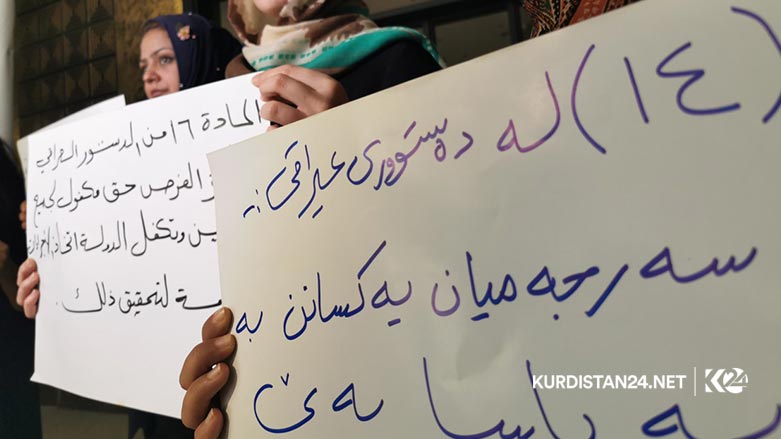 المادة ١٦ من الدستور العراقي
الفرص حق مكفول لجميع
ين وتكفل الدولة اتخاذ
مة لتحقيق ذلك .
(١٤) لە دەستووری عیراقی :
سەرجەمیان یەکسانن بە
یاسا
KURDISTAN24.NET
K24